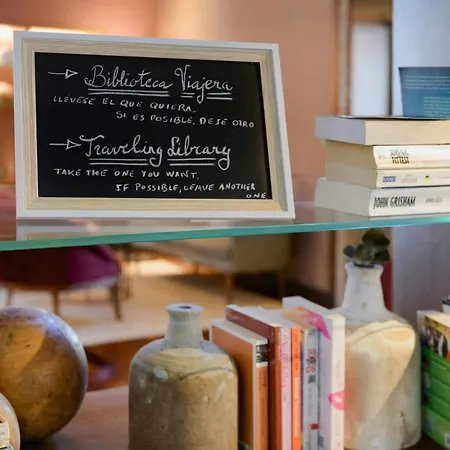 → Biblioteca Viajera
LLÉVESE EL QUE QUIERA.
SI ES POSIBLE, DEJE OTRO
→ Traveling Library
TAKE THE ONE YOU WANT.
IF POSSIBLE, LEAVE ANOTHER
ONE
FITTEST
JOHN GRISHAM